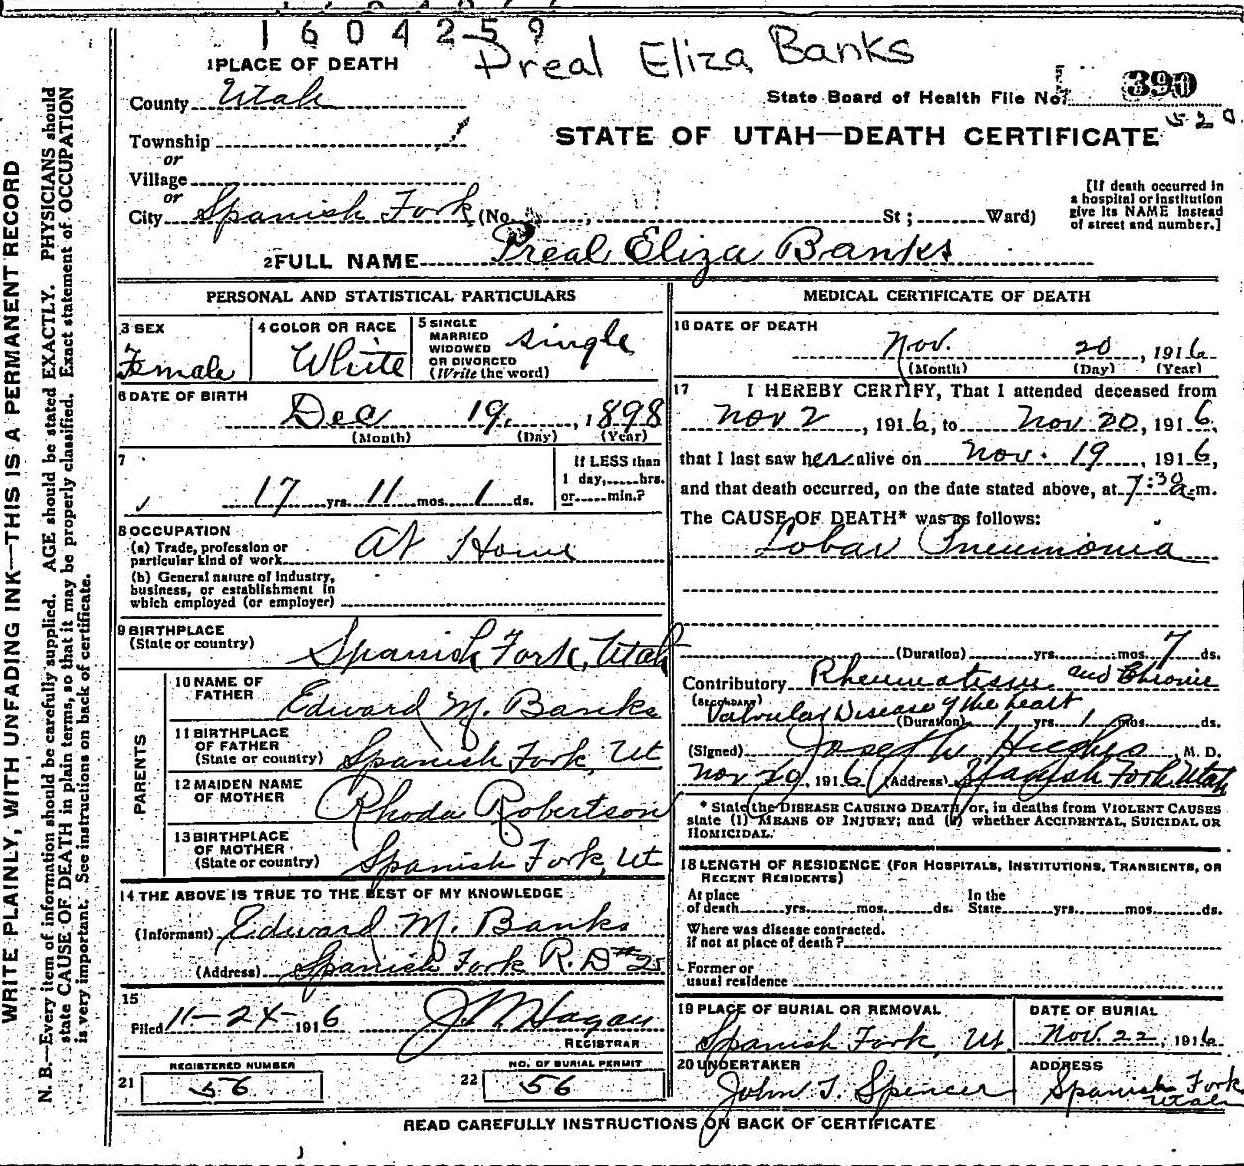 1604259
Preal Eliza Banks
1 PLACE OF DEATH
County Utah
State Board of Health File No. 390
520
Township
or
Village
or
City Spanish Fork (No. St; Ward)
STATE OF UTAH—DEATH CERTIFICATE
[If death occurred in
a hospital or institution
give its NAME instead
of street and number.]
2 FULL NAME Preal Eliza Banks
PERSONAL AND STATISTICAL PARTICULARS
3 SEX
Female
4 COLOR OR RACE
White
5 SINGLE
MARRIED
WIDOWED
OR DIVORCED
(Write the word)
single
6 DATE OF BIRTH
Dec 19, 1898
(Month) (Day) (Year)
7
17 yrs. 11 mos. 1 ds.
If LESS than
1 day, hrs.
or min.?
8 OCCUPATION
(a) Trade, profession or
particular kind of work At Home
(b) General nature of industry,
business, or establishment in
which employed (or employer)
9 BIRTHPLACE
(State or country) Spanish Fork, Utah
PARENTS
10 NAME OF
FATHER Edward M. Banks
11 BIRTHPLACE
OF FATHER
(State or country) Spanish Fork, Ut
12 MAIDEN NAME
OF MOTHER Rhoda Robertson
13 BIRTHPLACE
OF MOTHER
(State or country) Spanish Fork, Ut
14 THE ABOVE IS TRUE TO THE BEST OF MY KNOWLEDGE
(Informant) Edward M. Banks
(Address) Spanish Fork R. D # 25
15
Filed 11-24-1916 J M Hagan
REGISTRAR
REGISTERED NUMBER
21 56
NO. OF BURIAL PERMIT
22 56
MEDICAL CERTIFICATE OF DEATH
16 DATE OF DEATH
Nov. 20, 1916
(Month) (Day) (Year)
17 I HEREBY CERTIFY, That I attended deceased from
Nov 2, 1916, to Nov 20, 1916,
that I last saw her alive on Nov. 19, 1916,
and that death occurred, on the date stated above, at 7:30 a.m.
The CAUSE OF DEATH* was as follows:
Lobar Pneumonia
(Duration) yrs. mos. 7 ds.
Contributory Rheumatism and Chronic
(SECONDARY) Valvular Disease of the heart
(Duration) 1 yrs. 1 mos. ds.
(Signed) Joseph Hughes M. D.
Nov 20, 1916 (Address) Spanish Fork Utah
* State the DISEASE CAUSING DEATH, or, in deaths from VIOLENT CAUSES
state (1) MEANS OF INJURY; and (2) whether ACCIDENTAL, SUICIDAL OR
HOMICIDAL.
18 LENGTH OF RESIDENCE (FOR HOSPITALS, INSTITUTIONS, TRANSIENTS, OR
RECENT RESIDENTS)
At place
of death yrs. mos. ds.
In the
State yrs. mos. ds.
Where was disease contracted.
if not at place of death?
Former or
usual residence
19 PLACE OF BURIAL OR REMOVAL
Spanish Fork, Ut.
DATE OF BURIAL
Nov. 22, 1916
20 UNDERTAKER
John T. Spencer
ADDRESS
Spanish Fork
Utah
READ CAREFULLY INSTRUCTIONS ON BACK OF CERTIFICATE
WRITE PLAINLY, WITH UNFADING INK—THIS IS A PERMANENT RECORD
N. B.—Every item of information should be carefully supplied. AGE should be stated EXACTLY. PHYSICIANS should
state CAUSE OF DEATH in plain terms, so that it may be properly classified. Exact statement of OCCUPATION
is very important. See instructions on back of certificate.